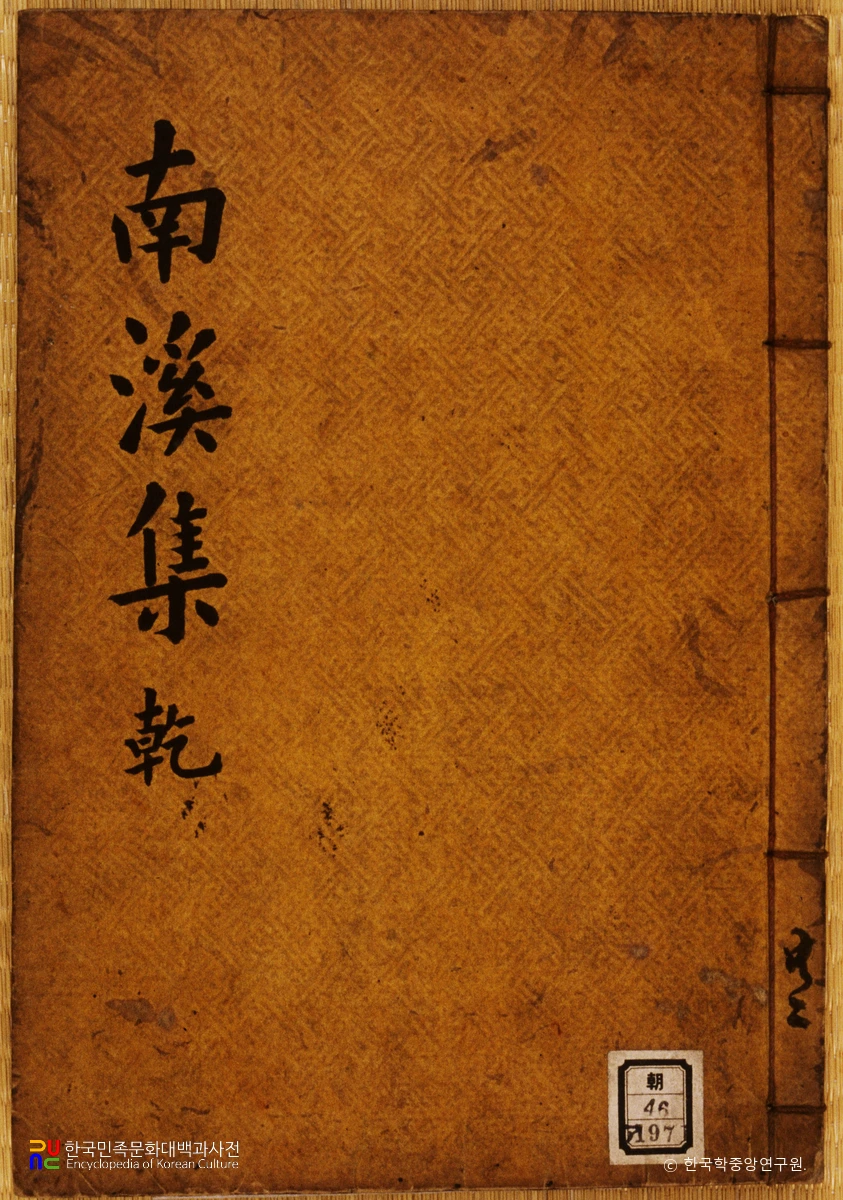 南溪集 乾
共二
朝
46
197
PUNC 한국민족문화대백과사전
Encyclopedia of Korean Culture
© 한국학중앙연구원.